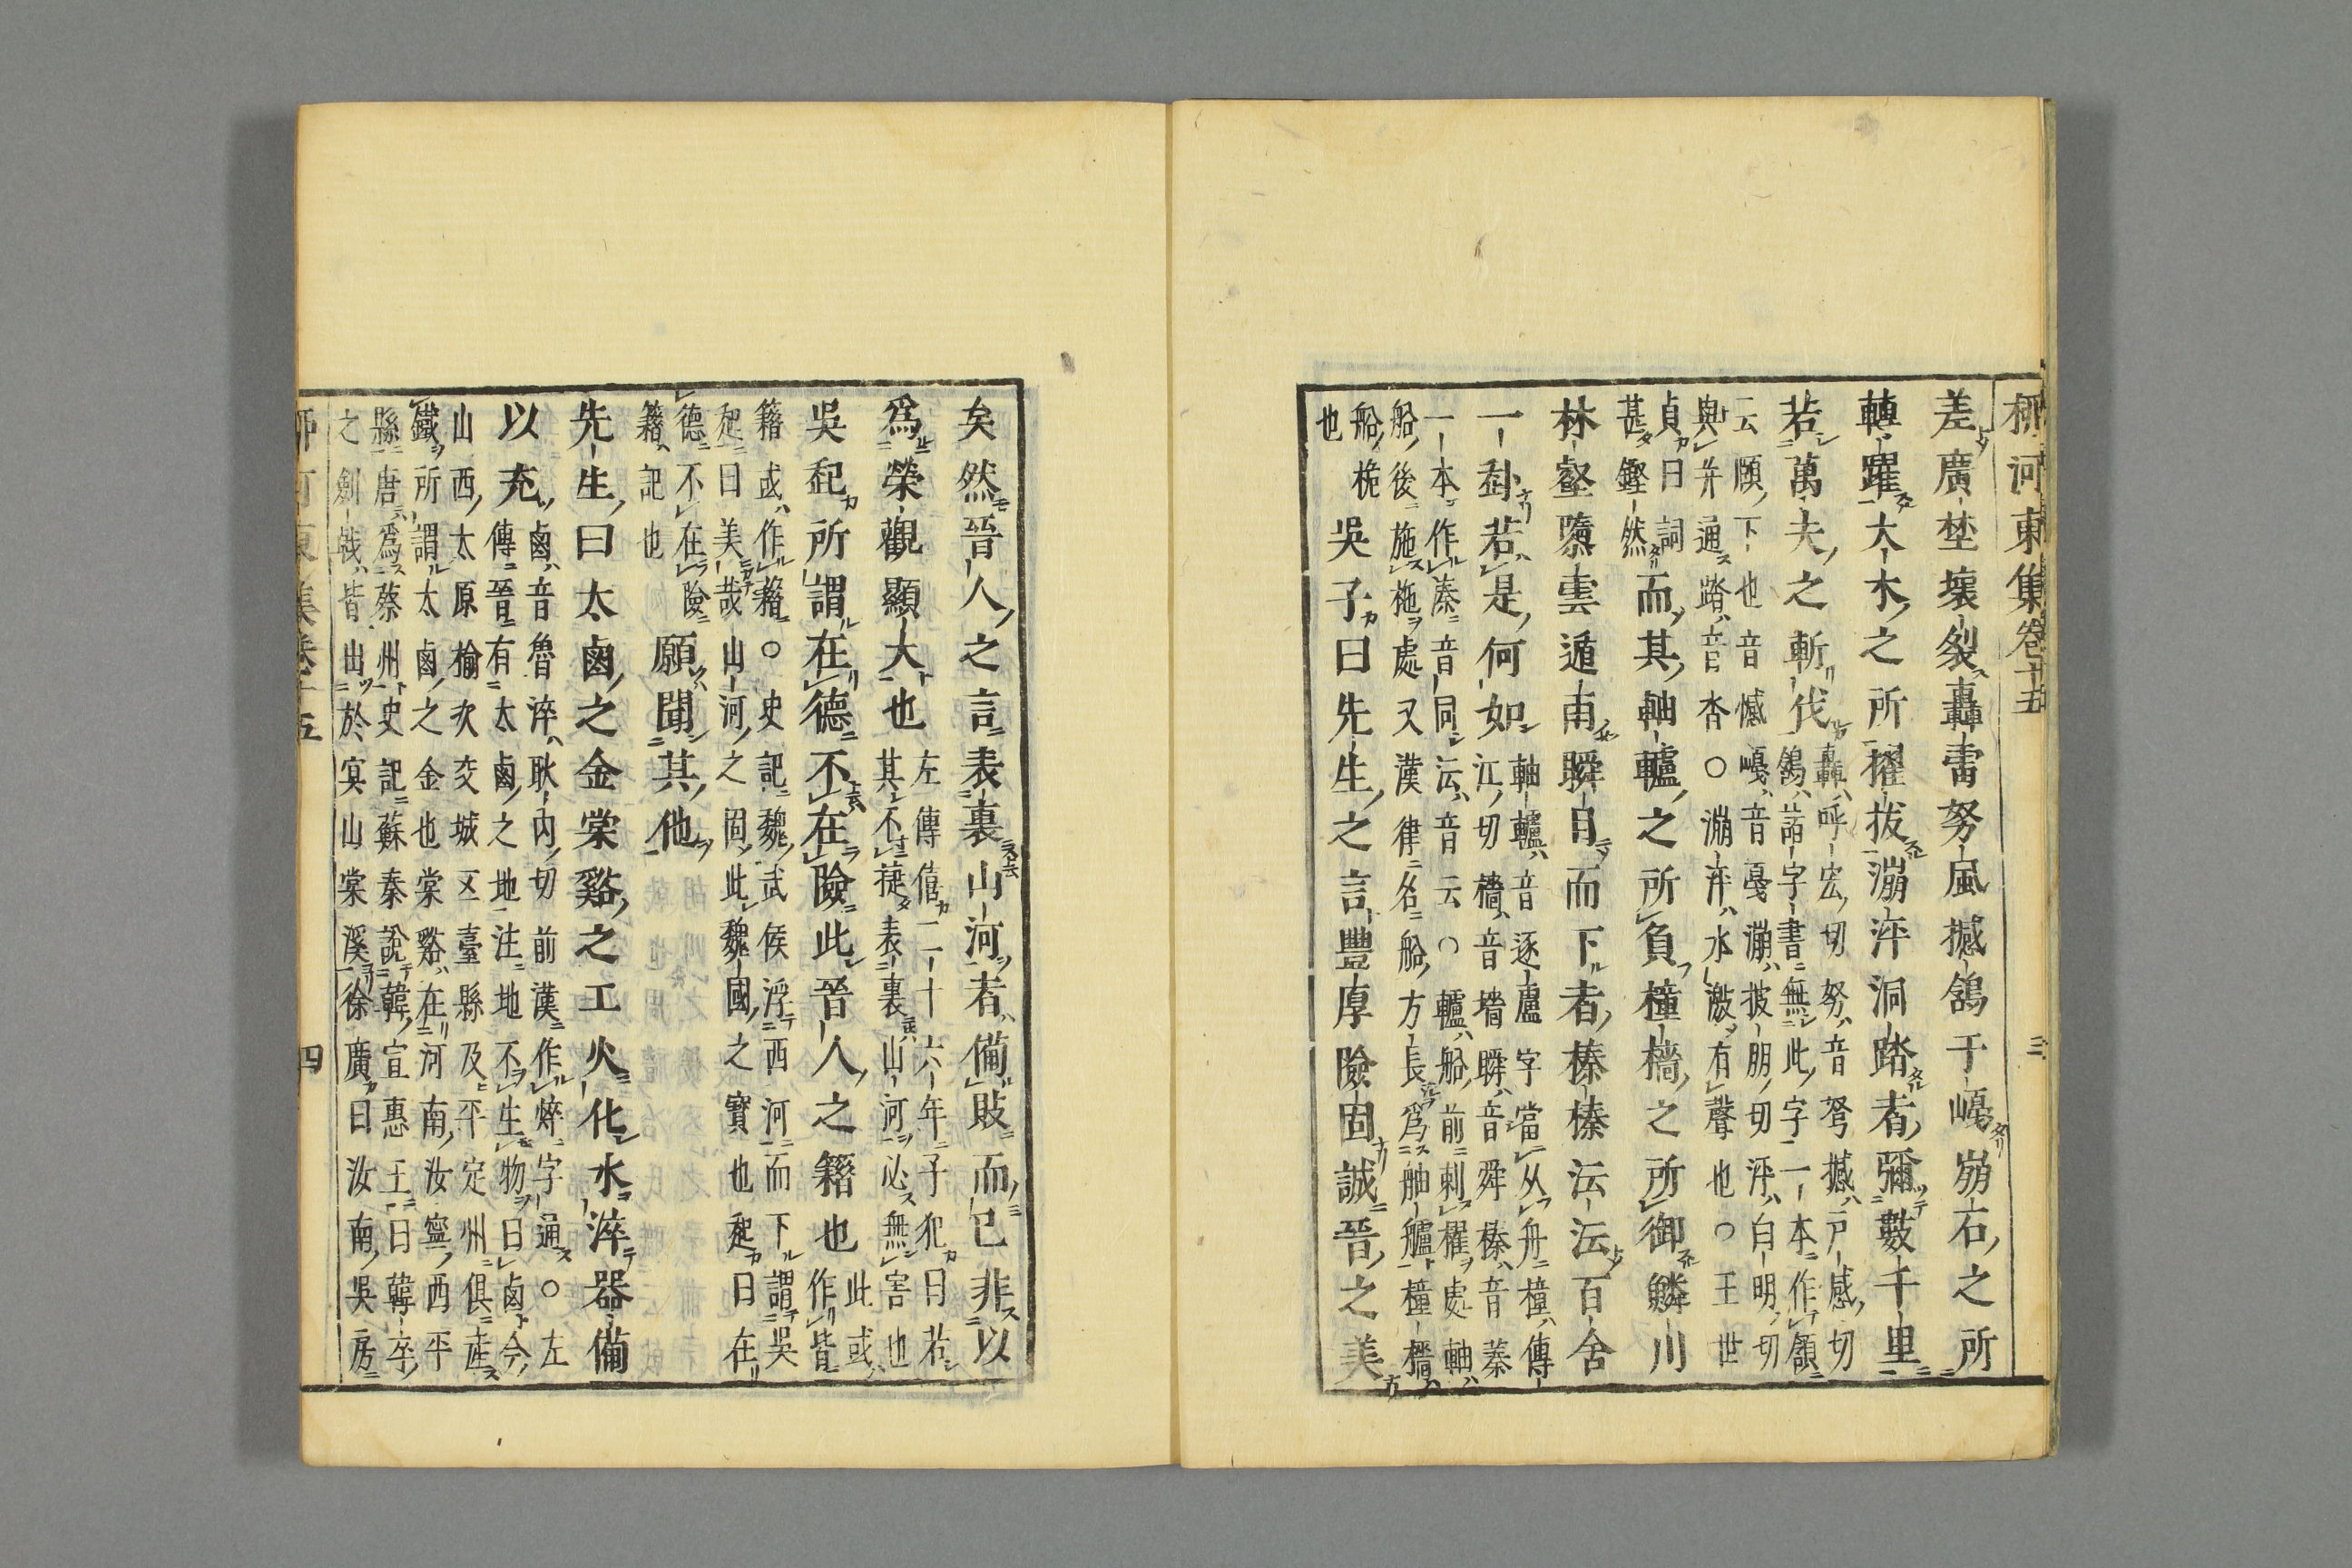 柳河東集卷十五 三
差廣坔壞裂轟雷努風撼鵮于嵑崩石之所
轉躍大木之所擢拔漰泙洞踏者彌數千里
若萬夫之斬伐
轟呼宏切努音弩撼戸感切
鵮諸字書無此字一本作頷
云頤下也音憾嵑音曷漰披朋切泙白明切
與幷通踏音沓○漰泙水激有聲也○王世
貞曰詞
甚鏗然
而其軸轤之所負橦檣之所御鱗川
林壑隳雲遁雨瞬目而下者榛榛沄沄百舍
一赴若是何如
軸轤音逐盧字當从舟橦傳
江切檣音墻瞬音舜榛音蓁
一本作溱音同沄音云○轤船前刺櫂處軸
船後施柂處又漢律名船方長爲舳艫橦檣
船桅
也
吳子曰先生之言豐厚險固誠晉之美
矣然晉人之言表裏山河者備敗而已非以
爲榮觀顯大也
左傳僖二十六年子犯曰若
其不捷表裏山河必無害也
吳起所謂在德不在險此晉人之籍也
此或
作皆
籍或作藉○史記魏武侯浮西河而下謂吳
起曰美哉山河之固此魏國之寶也起曰在
德不在險
籍記也
願聞其他
先生曰太鹵之金棠谿之工火化水淬器備
以充
鹵音魯淬取內切前漢作焠字通○左
傳晉有太鹵之地注地不生物曰鹵今
山西太原榆次交城五臺縣及平定州俱產
鐵所謂太鹵之金也棠谿在河南汝寧西平
縣唐爲蔡州史記蘇秦說韓宣惠王曰韓卒
之劍戟皆出於冥山棠溪徐廣曰汝南吳房
柳河東集卷十五 四